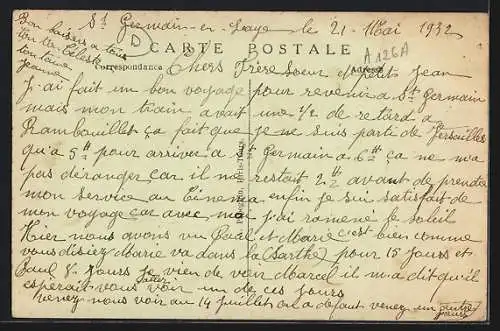 St Germain-en-Laye le 21 Mai 1932
Bon baisers à tous
ton
tontaine
Jeanne
D
CARTE POSTALE
A126A
Correspondance
Adresse
Chers Frère Soeur et petit Jean
J'ai fait un bon voyage pour revenir a St Germain
mais mon train avait une 1/2 de retard a
Rambouillet ça fait que je me suis partie de Versailles
qu'a 5h pour arriver a St Germain a 6h ça ne m'a
pas déranger car il me restait 2h avant de prendre
mon service au Cinema enfin je suis satisfait de
mon voyage car avec moi j'ai ramené le soleil
Hier nous avons vu Paul et Marie c'est bien comme
vous disiez Marie va dans la (Sarthe) pour 15 jours et
Paul 8 Jours je viens de voir Marcel il m'a dit qu'il
esperait vous voir un de ces jours
venez nous voir au 14 juillet ou a defaut venez un autre
jour